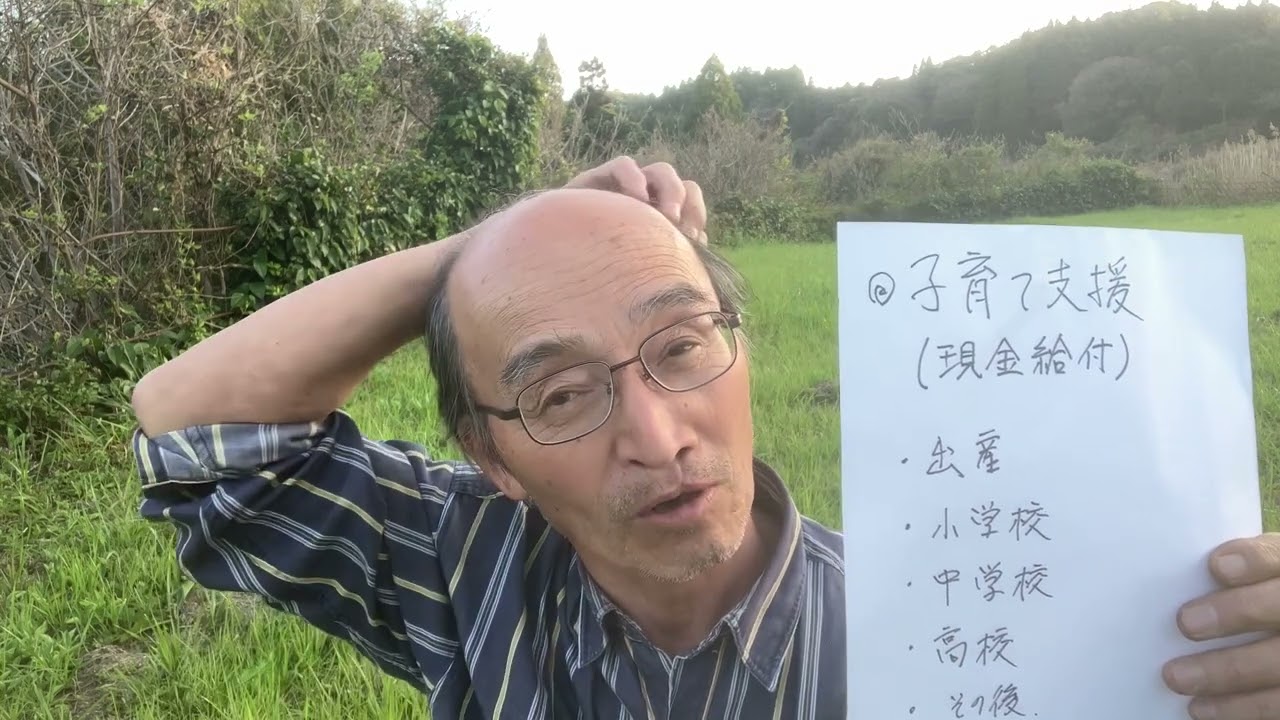 ◎子育て支援
(現金給付)
・出産
・小学校
・中学校
・高校
・その後.